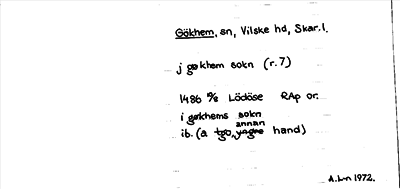 Gökhem, sn, Vilske hd, Skar. l.
j gøkhem sokn (r. 7)
1486 8/8 Lödöse RAp or.
i gøkhems sokn
ib. (a tgo, yngre annan hand)
A. L-n 1972.